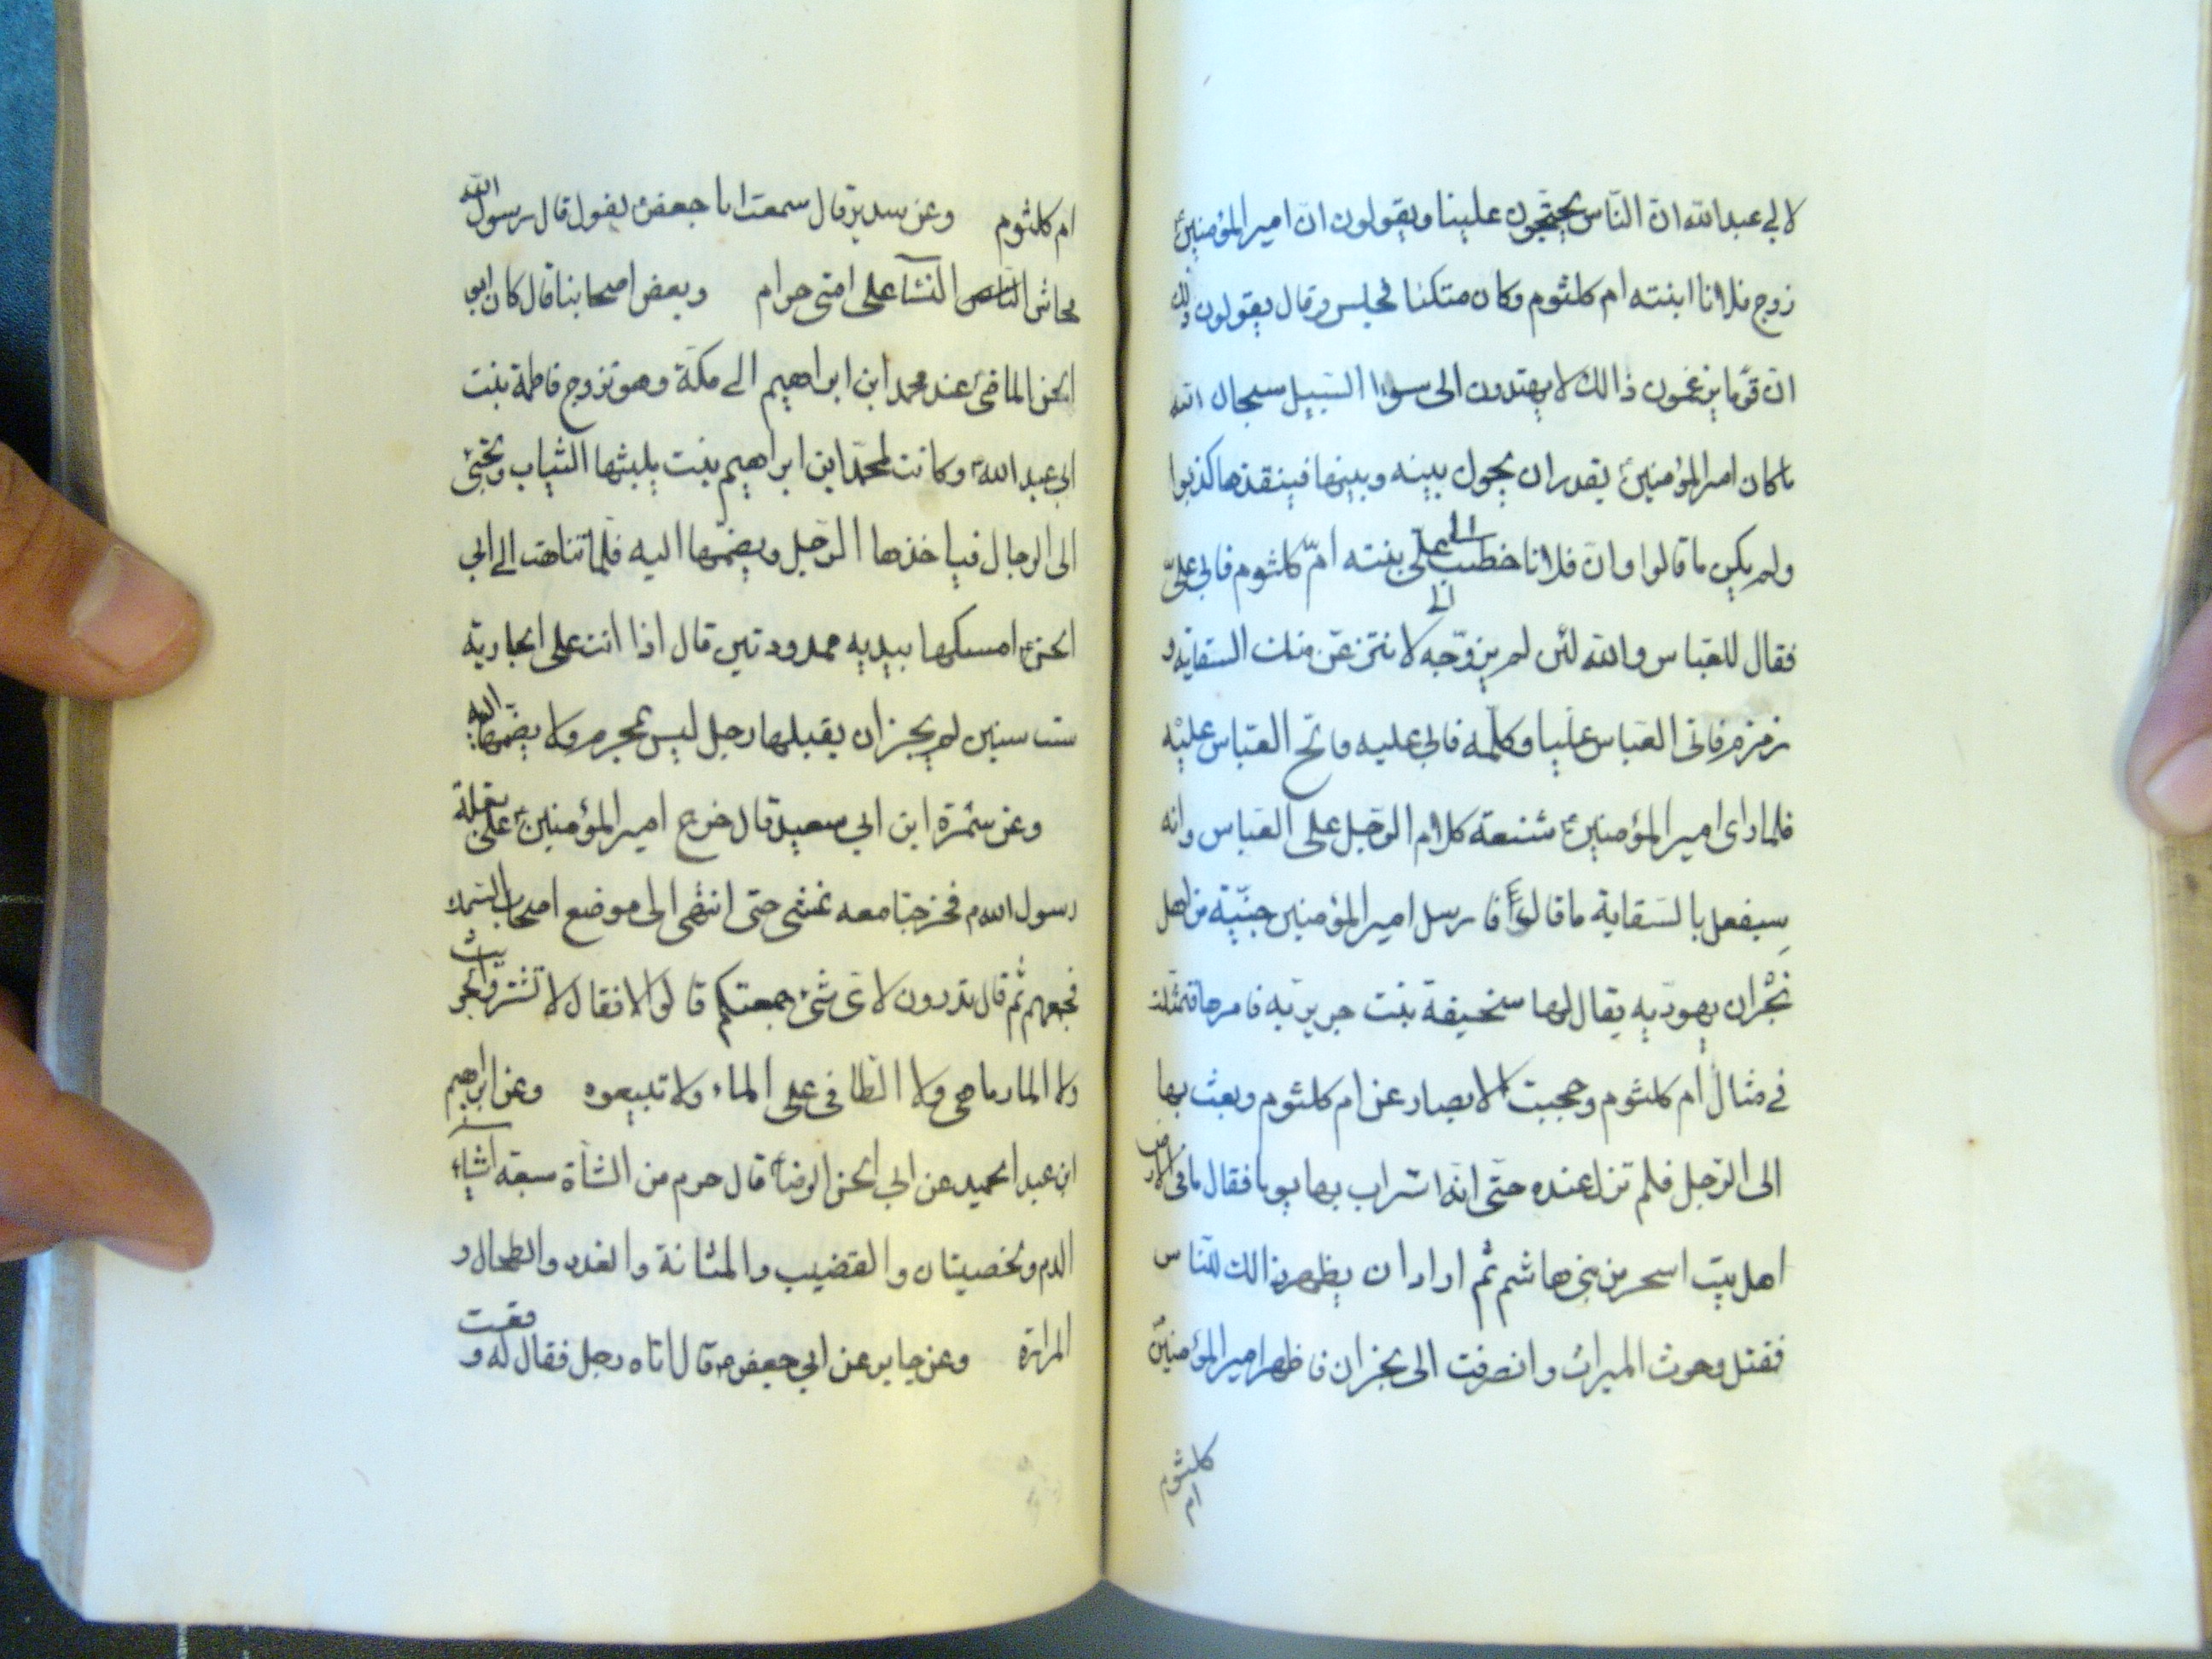 لابي عبد الله ان الناس يحتجون علينا ويقولون ان امير المؤمنين ع
زوج فلانا ابنته ام كلثوم وكان متكئا فجلس وقال يقولون ذلك
ان قوما يزعمون ذالك لا يهتدون الى سواء السبيل سبحان الله
ما كان امير المؤمنين ع يقدر ان يحول بينه وبينها فينقذها كذبوا
ولم يكن ما قالوا وان فلانا خطب الى علي بنته ام كلثوم فابى علي
فقال للعباس والله لئن لم يزوجه الي لانتزعن منك السقاية و
زمزم فاتى العباس عليا وكلمه فابى عليه فالح العباس عليه
فلما راى امير المؤمنين ع شنعة كلام الرجل على العباس وانه
سيفعل بالسقاية ما قال فارسل امير المؤمنين جنية من اهل
نجران يهودية يقال لها سخيفة بنت جريرية فامرها فتمثلت
في مثال ام كلثوم وحجبت الابصار عن ام كلثوم وبعث بها
الى الرجل فلم تزل عنده حتى انه استراب بها يوما فقال ما في الارض
اهل بيت اسحر من بني هاشم ثم اراد ان يظهر ذالك للناس
فقتل وحوت الميراث وانصرفت الى نجران فاظهر امير المؤمنين
كلثوم
ام كلثوم وعن سدير قال سمعت ابا جعفر ع يقول قال رسول الله
محاش النساء على امتي حرام وبعض اصحابنا قال كان ابي
الحسن الماضي ع عند محمد ابن ابراهيم الى مكة وهو تزوج فاطمة بنت
ابي عبد الله ع وكانت لمحمد ابن ابراهيم بنت يلبثها الثياب وتجئ
الى الرجال فياخذها الرجل ويضمها اليه فلما تناهت الى ابي
الحسن ع امسكها بيديه ممدودتين قال اذا اتت على الجارية
ست سنين لم يجز ان يقبلها رجل ليس بمحرم ولا يضمها اليه
وعن سمرة ابن ابي سعيد قال خرج امير المؤمنين ع على بغلة
رسول الله م فخرجنا معه نمشي حتى انتهى الى موضع اصحاب السمك
فجمعهم ثم قال تدرون لاي شيء جمعتكم قالوا لا فقال لا تشتروا الجريث
ولا المارماهي ولا الطافي على الماء ولا تبيعوه وعن ابراهيم
ابن عبد الحميد عن ابي الحسن الرضا ع قال حرم من الشاة سبعة اشياء
الدم وخصيتان والقضيب والمثانة والغدد والطحال و
المرارة وعن جابر عن ابي جعفر ع قال اتاه رجل فقال له وقعت